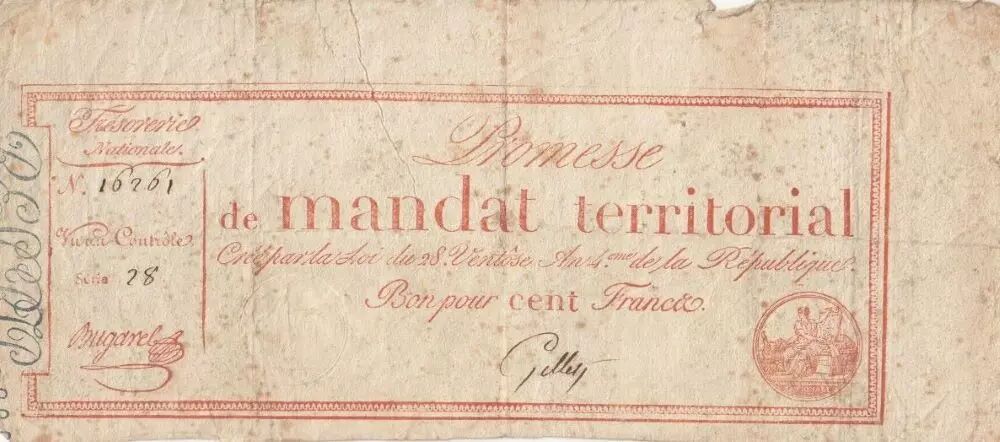 Trésorerie
Nationale.
N. 16261
Vu au Contrôle
Série 28
Bugarel
Promesse
de mandat territorial
Créé par la Loi du 28. Ventôse, An 4.eme de la République.
Bon pour cent Francs.